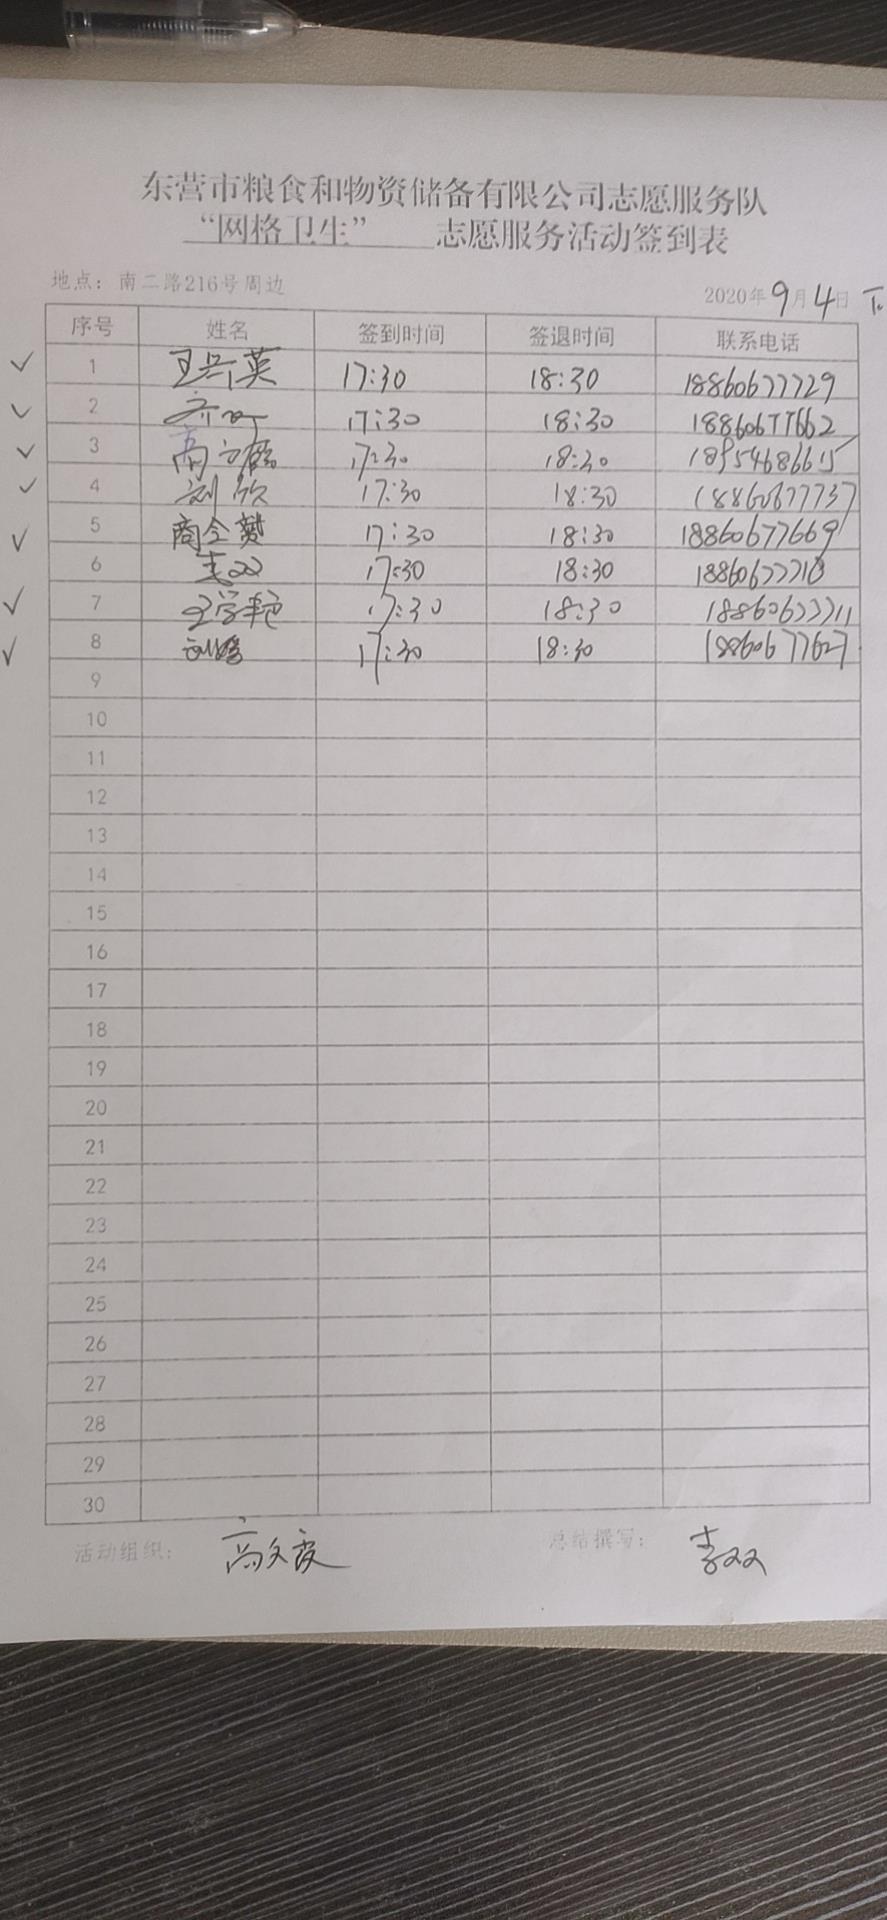 东营市粮食和物资储备有限公司志愿服务队
“网格卫生” 志愿服务活动签到表
地点：南二路216号周边 2020年9月4日 下
序号 姓名 签到时间 签退时间 联系电话
1 王兴英 17:30 18:30 18860677729
2 17:30 18:30 18860677662
3 17:30 18:30 18954686615
4 刘欣 17:30 18:30 18860677737
5 商全赞 17:30 18:30 18860677669
6 李双 17:30 18:30 18860677710
7 王学艳 17:30 18:30 18860677711
8 17:30 18:30 18860677627
9
10
11
12
13
14
15
16
17
18
19
20
21
22
23
24
25
26
27
28
29
30
活动组织： 高文霞 总结撰写： 李双双